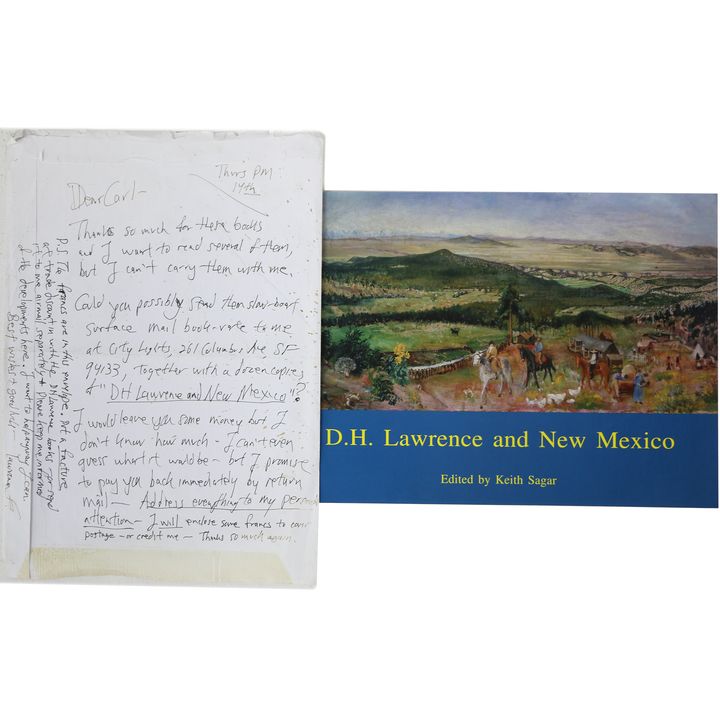 Thurs PM
19th
Dear Carl -
Thanks so much for these books
and I want to read several of them,
but I can't carry them with me.
Could you possibly send them slow-boat
surface mail book-rate to me
at City Lights, 261 Columbus Ave SF
94133, together with a dozen copies
of "DH Lawrence and New Mexico"?
I would leave you some money but I
don't know how much - I can't even
guess what it would be - but I promise
to pay you back immediately by return
mail - Address everything to my personal
attention - I will enclose some francs to cover
postage - or credit me - Thanks so much again.
P.S. The francs are in this envelope. Put a facture
at trade discount in with the DH Lawrence books - or send
it to me airmail separately + Please keep me informed
of the developments here. I want to help any way I can.
Best wishes + good luck
D.H. Lawrence and New Mexico
Edited by Keith Sagar